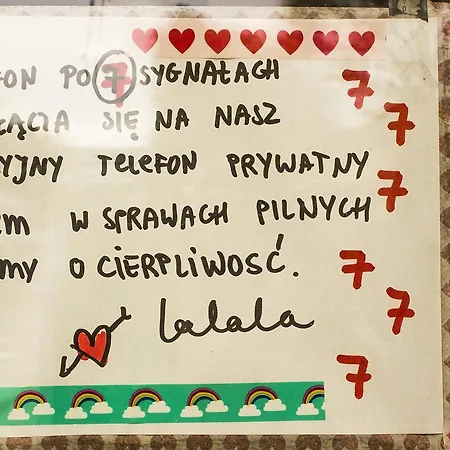 FON PO 7 SYGNAŁACH 7
ZĄCZA SIĘ NA NASZ 7
YJNY TELEFON PRYWATNY 7
EM W SPRAWACH PILNYCH
MY O CIERPLIWOŚĆ. 7
lalala 7
7